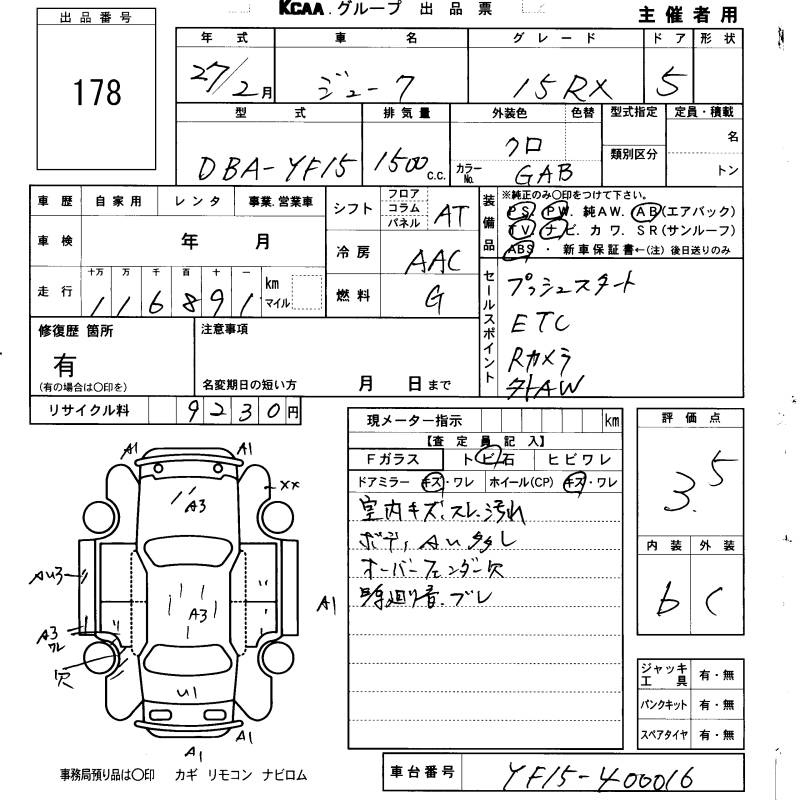 KCAA.グループ 出品票
主催者用
出品番号
178
年式 車名 グレード ドア 形状
27/2月 ジューク 15RX 5
型式 排気量 外装色 色替 型式指定 定員・積載
DBA-YF15 1500c.c. クロ 類別区分 名
カラーNo. GAB トン
車歴 自家用 レンタ 事業.営業車
シフト フロア コラム パネル AT
装備品 ※純正のみ○印をつけて下さい。
PS. PW. 純AW. AB(エアバック)
TV. ナビ. カワ. SR(サンルーフ)
ABS ・ 新車保証書←(注) 後日送りのみ
車検 年 月
冷房 AAC
走行 十万 万 千 百 十 一
116891 km マイル
燃料 G
セールスポイント
プッシュスタート
ETC
Rカメラ
外AW
修復歴 箇所
有
(有の場合は○印を)
注意事項
名変期日の短い方 月 日まで
リサイクル料 9230円
現メーター指示 km
【査定員記入】
Fガラス トビ石 ヒビワレ
ドアミラー キズ・ワレ ホイール(CP) キズ・ワレ
室内キズ、スレ、汚れ
ボディAU多し
オーバーフェンダー欠
評価点
3.5
内装 外装
b C
A1 A1
A3
××
AU3
A3
A3
ワレ
A1
欠
U1
A1
A1
ジャッキ工具 有・無
パンクキット 有・無
スペアタイヤ 有・無
事務局預り品は○印 カギ リモコン ナビロム
車台番号 YF15-400016